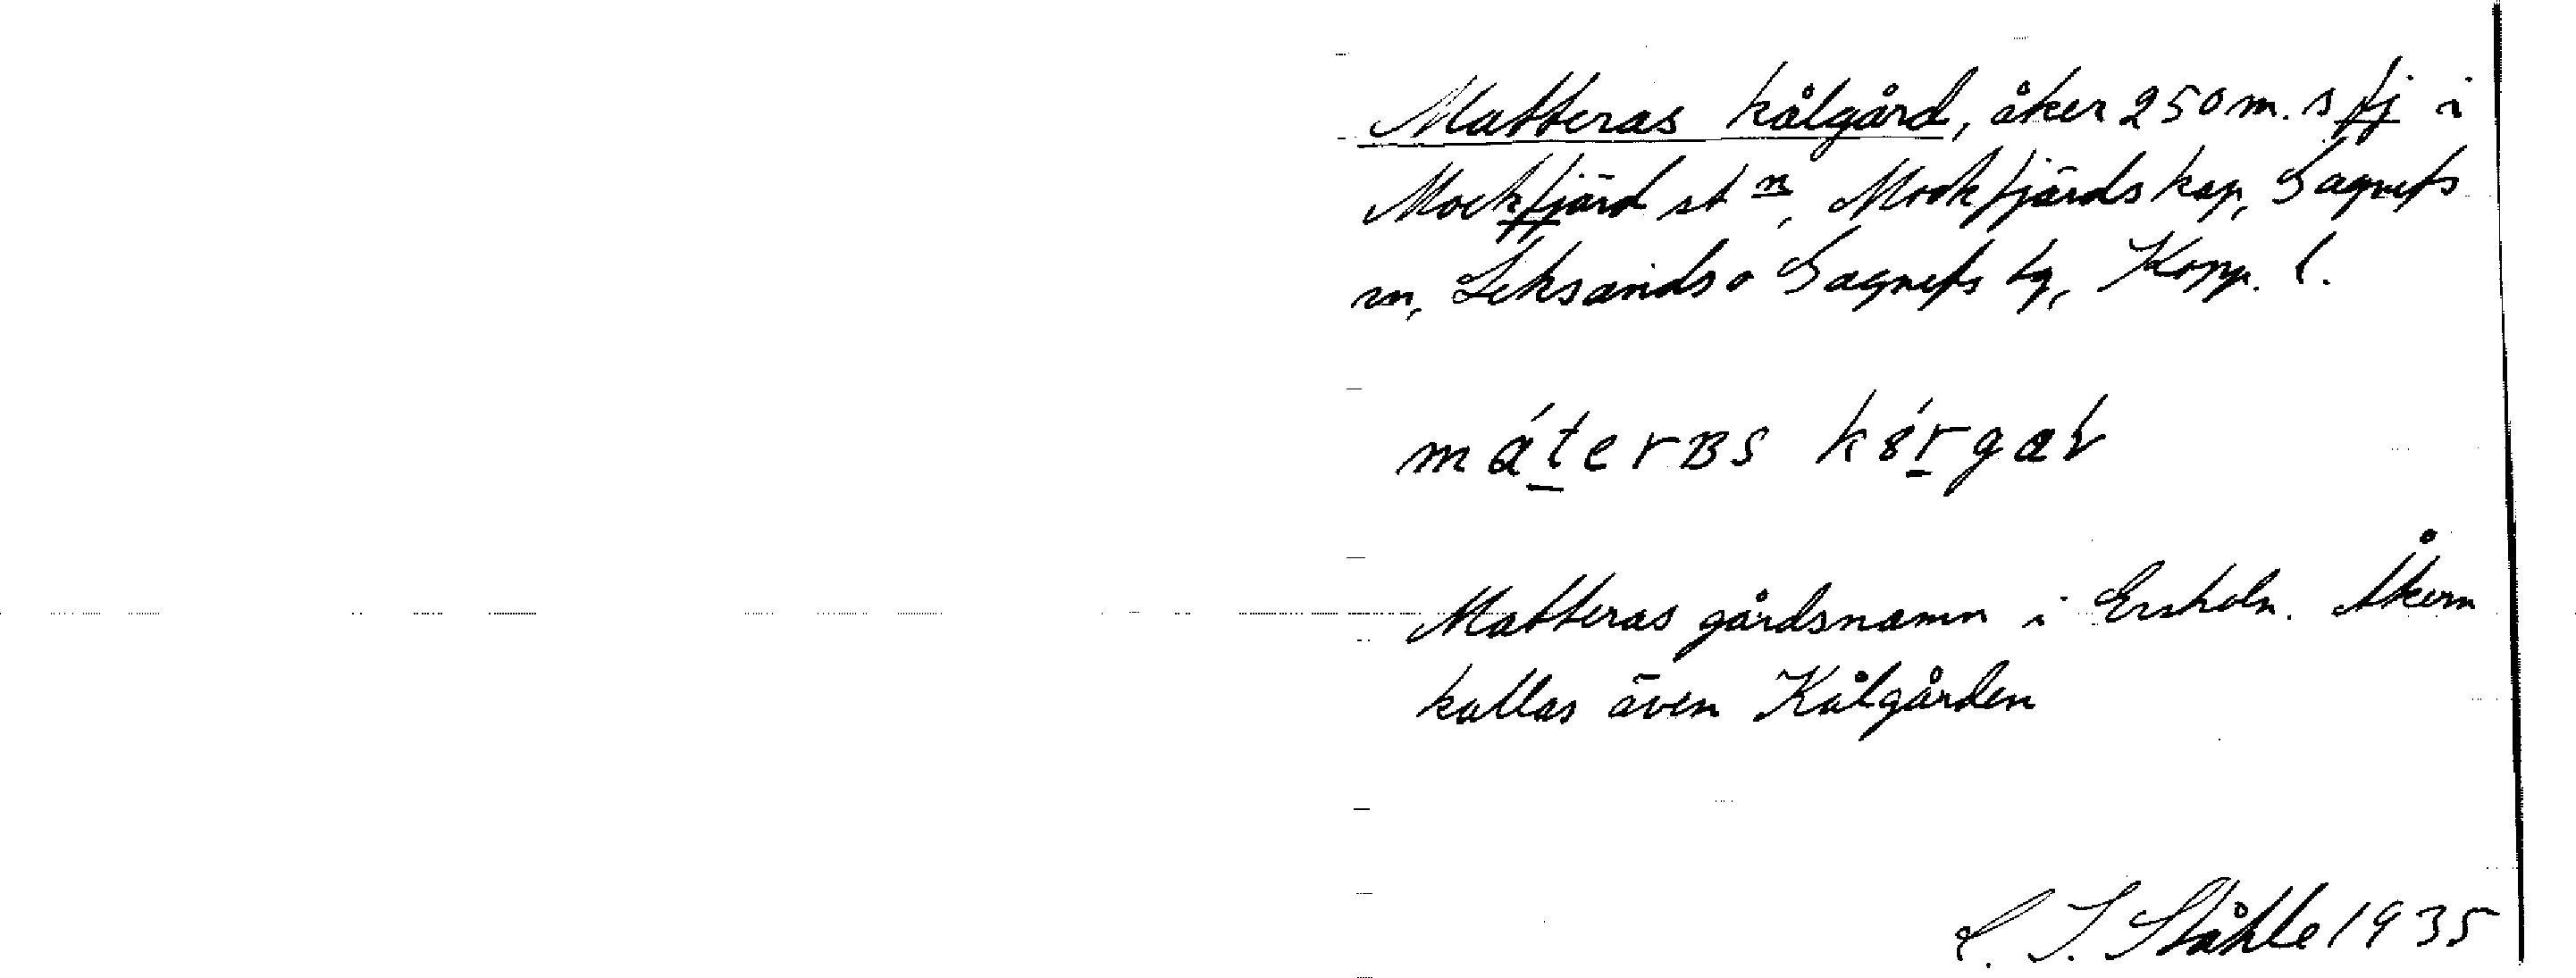 Matteras kålgård, åker 250 m. s fj i
Mockfjärd stn, Mockfjärds kap, Gagnefs
sn, Leksands o Gagnefs tg, Kopp. l.
máterBs kórgaɫ
Matteras gårdsnamn i Ersholn. Åkern
kallas även Kålgården
C. I. Ståhle 1935